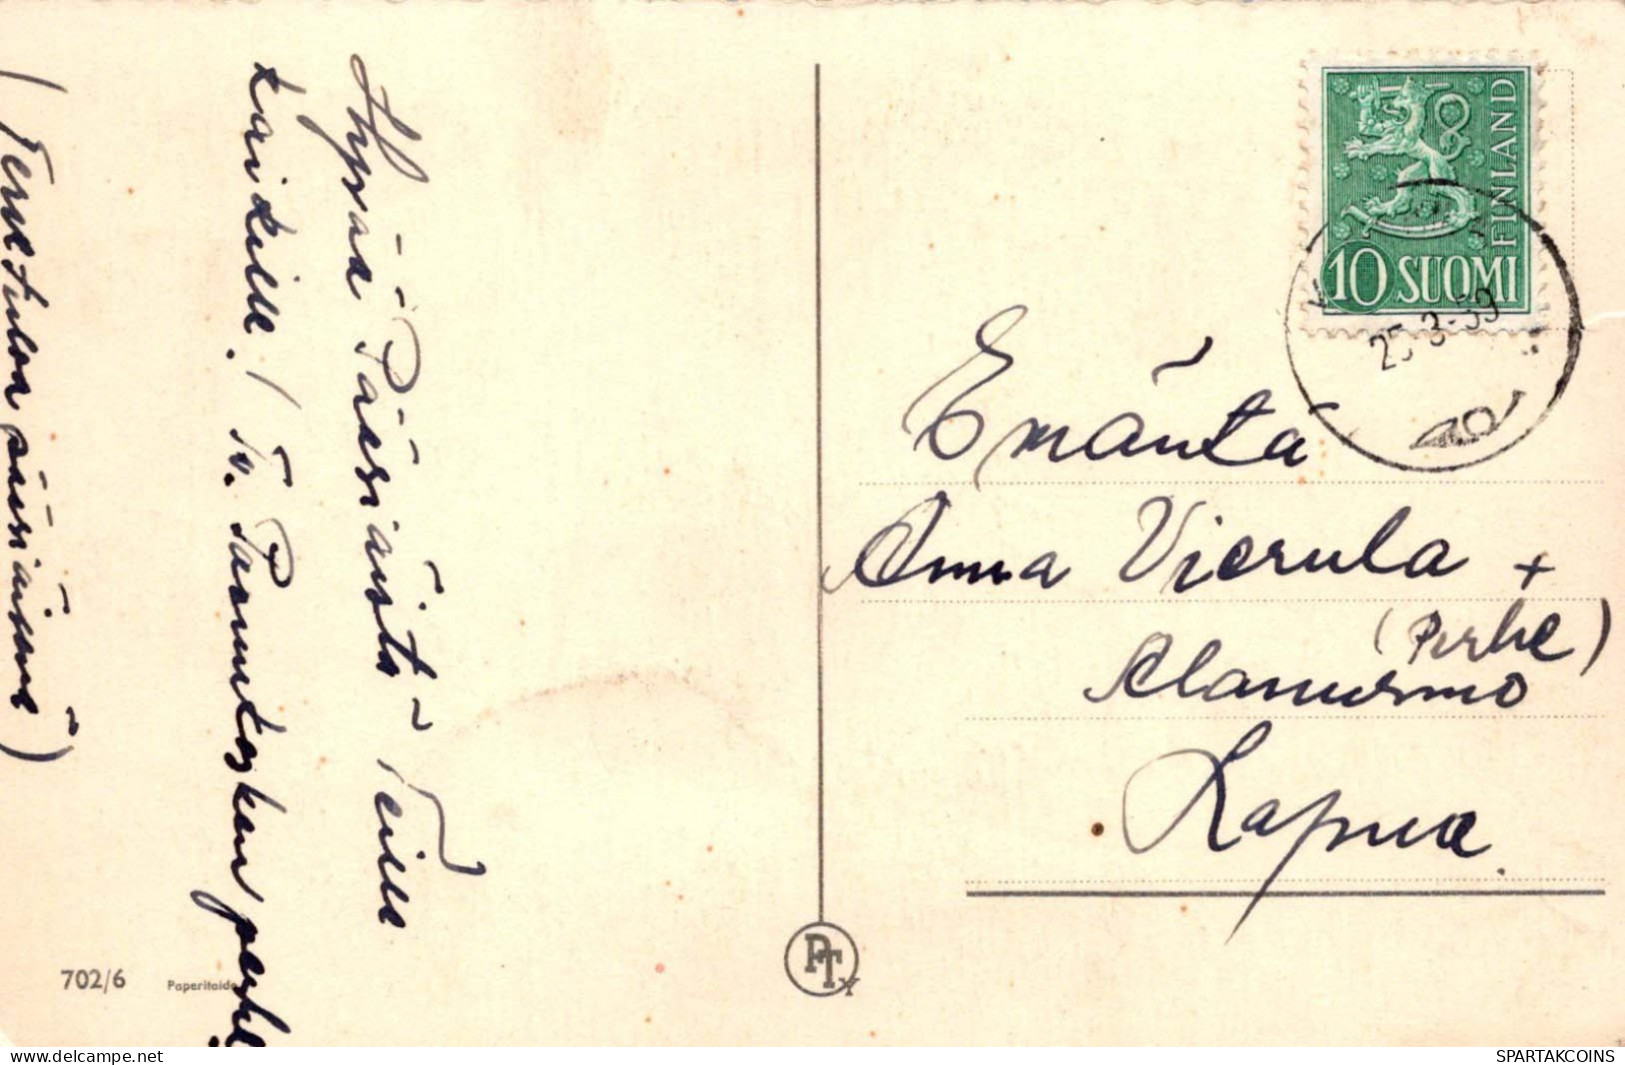 Hyvää Pääsiäistä Teille
kaikille! Tv. Parmukosken perhe
(Tervetuloa pääsiäisenä)
FINLAND
10 SUOMI
25-3-59
Emäntä
Anna Vierula +
(Perhe)
Alanurmo
Lapua.
702/6 Paperitaide
PTx
SPARTAKCOINS
www.delcampe.net